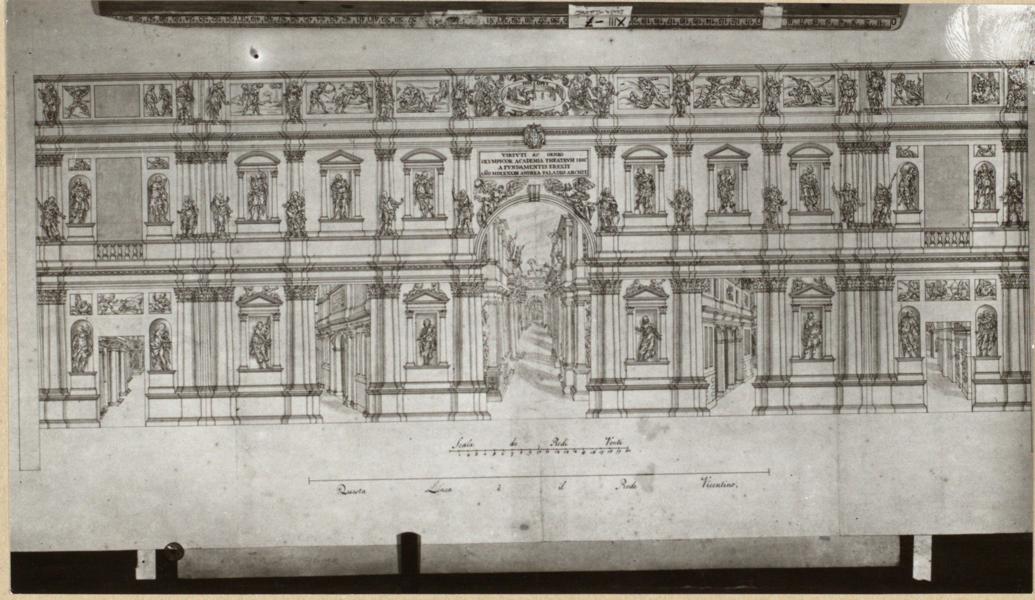 XIII - 7
VIRTVTI AC GENIO
OLYMPICOR ACADEMIA THEATRVM HOC
A FVNDAMENTIS EREXIT
PALADIO ARCHIT
Scala de Piedi Venti
Questa Linea è il Piede Vicentino.